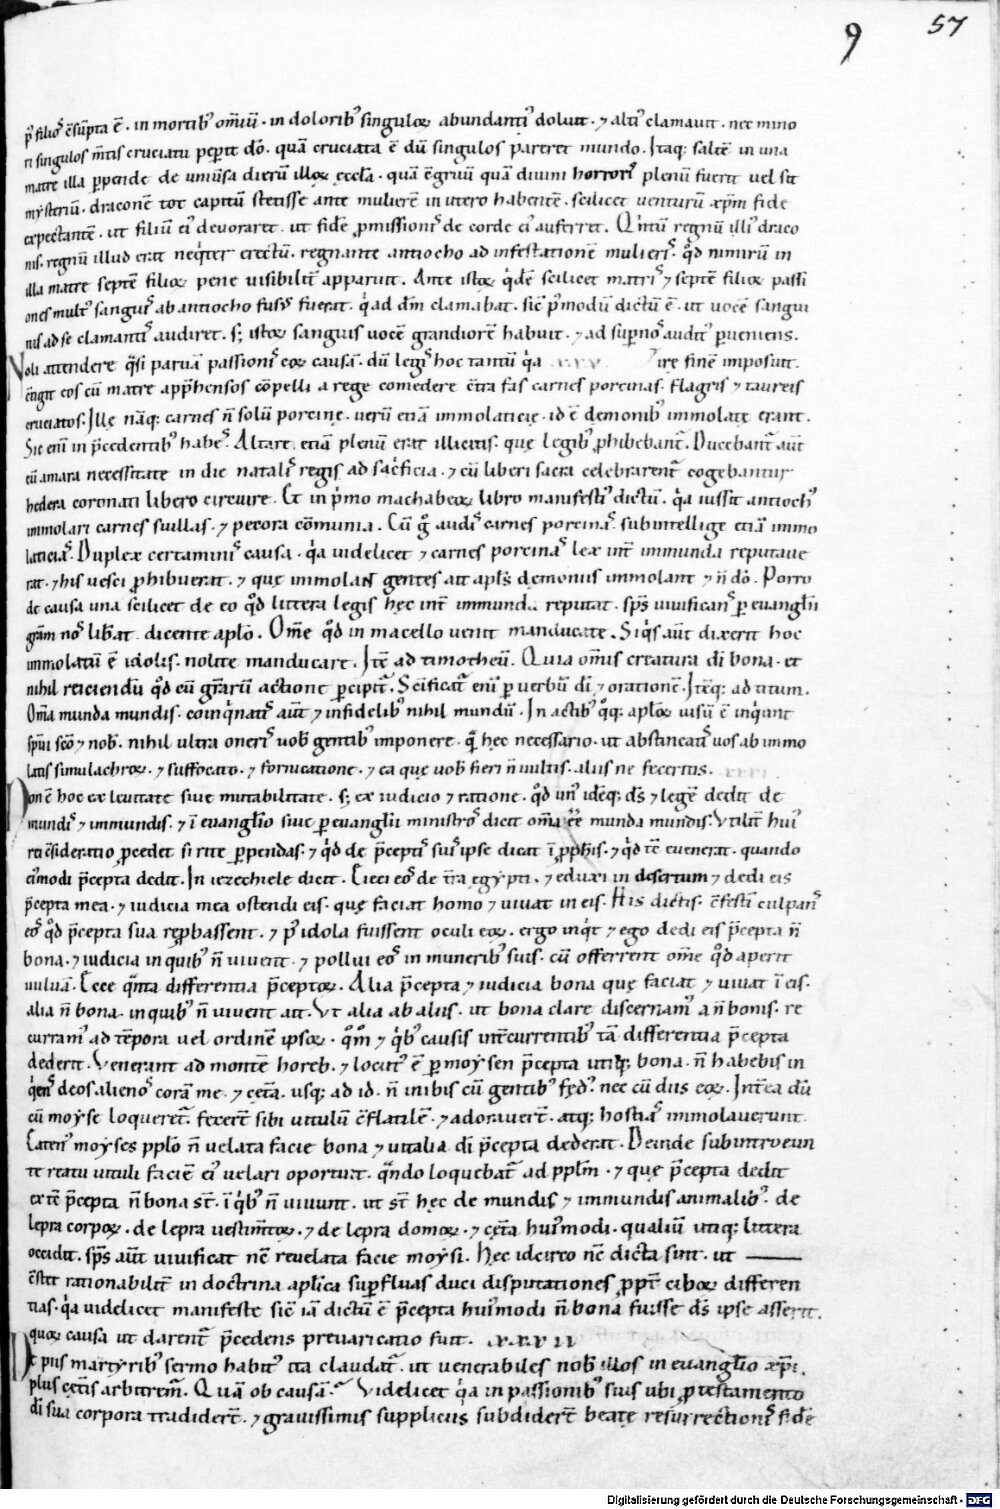 9 57
p̄ filioſ c̄ſūpta ē. in mortib' om̄iū. in dolorib' ſinguloꝝ abundanti' doluit. ⁊ alti' clamauit. nec mino
ri ſingulos m̄tis cruciatu peꝑit dō. quā cruciata ē dū ſingulos pareret mundo. Itaq; ſaltē in una
matre illa ꝑpende de uniu̅ſa dierū illoꝝ ęccl̄a. quā ēgruū quā diuini horroriſ plenū fuerit vel ſit
myſteriū. draconē tot capitū ſtetiſſe ante mulierē in utero habentē. ſcilicet venturū xp̄m fide
expectantē. ut filiū ei' deuoraret. ut fidē ꝓmiſſioniſ de corde ei' auferret. Q̄ntū regnū illi' draco
nis. regnū illud erat neq̄iter erectū. regnante antiocho ad infeſtationē mulieriſ. q̊d nimirū in
illa matre ſeptē filioꝝ pene viſibilit̄ apparuit. Ante iſtoꝝ q̄dē ſcilicet matriſ ⁊ ſeptē filioꝝ paſſi
ones mult' ſanguiſ ab antiocho fuſ' fuerat. q̄ ad dn̄m clamabat. ſic̄ p̄modū dictū ē. ut vocē ſangui
nis ad ſe clamantiſ audiret. ſ; iſtoꝝ ſanguis vocē grandiorē habuit. ⁊ ad ſuꝑnoſ audit' ꝑueniens.
Noli attendere q̄ſi paruā paſſioniſ eoꝝ cauſā. dū legiſ hoc tantū q̄a ire finē impoſuit.
c̄tigit eos cū matre appͤhenſos cōpelli a rege comedere c̄tra fas carnes porcinas. flagris ⁊ taureis
cruciatos. Illę nāq; carnes n̄ ſolū porcinę. verū etiā immolaticię. id ē dęmonib' immolatę erant.
Sic eni̅ in p̄cedentib' habeſ. Altare etiā plenū erat illicitis. quę legib' ꝓhibebant̄. Ducebant̄ aut̄
cū amara neceſſitate in die nataliſ regis ad ſac̄ficia. ⁊ cū liberi ſacra celebrarent̄ cogebantur
hedera coronati libero circuire. Et in p̄mo machabeoꝝ libro manifeſti' dictū. q̄a iuſſit antioch'
immolari carnes ſuillas. ⁊ pecora cōmunia. Cū g̊ audiſ carnes porcinaſ. ſubintellige etiā immo
laticiaſ. Duplex certaminiſ cauſa. q̄a uidelicet ⁊ carnes porcinaſ lex int̄ immunda reputaue
rat. ⁊ his ueſci ꝓhibuerat. ⁊ quę immolant gentes ait apl̄s dęmoniis immolant ⁊ n̄ dō. Porro
de cauſa una ſcilicet de eo q̊d littera legis hęc int̄ immunda reputat. ſp̄s viuificanſ ꝑ euangl̄ii
gr̄am noſ lib̄at. dicente apl̄o. Om̄e q̊d in macello uenit manducate. Siq̄s aut̄ dixerit hoc
immolatū ē idolis. nolite manducare. Itē ad timotheū. Quia om̄is creatura di̅ bona. et
nihil reiciendū q̊d cū gr̄arū actione ꝑcipit̄. Sc̄ificat̄ eni̅ ꝑ verbū di̅ ⁊ orationē. Itēq; ad titum.
Om̄a munda mundis. coinq̄natiſ aut̄ ⁊ infidelib' nihil mundū. In actib' q̊q; apl̄oꝝ uiſū ē inq̄unt
ſpi̅ui ſc̄o ⁊ nob̄. nihil ultra oneriſ uob̄ gentib' imponere. q̄ hęc neceſſario. ut abſtineatiſ vos ab immo
latis ſimulachroꝝ. ⁊ ſuffocato. ⁊ fornicatione. ⁊ ea quę uob̄ fieri n̄ uultis. aliis ne feceritis.
Non ē hoc ex leuitate ſiue mutabilitate. ſ; ex iudicio ⁊ ratione. q̊d un' idēq; d̄s ⁊ legē dedit de
mundiſ ⁊ immundis. ⁊ ī euangl̄io ſiue ꝑ euangl̄ii miniſtroſ dicit om̄a ēē munda mundis. Utilit̄ hui'
rei c̄ſideratio ꝓcedet ſi rite ꝑpendas. ⁊ q̊d de p̄ceptiſ ſuiſ ipſe dicat ī ꝓph̄is. ⁊ q̊d tē euenerat. quando
ei'modi p̄cepta dedit. In iezechiele dicit. Eieci eoſ de t̄ra egypti. ⁊ eduxi in deſertum ⁊ dedi eis
p̄cepta mea. ⁊ iudicia mea oſtendi eis. quę faciat homo ⁊ uiuat in eis. His dictis. c̄feſti̅ culpanſ
eoſ q̊d p̄cepta ſua reꝓbaſſent. ⁊ p' idola fuiſſent oculi eoꝝ. ergo inq̄t ⁊ ego dedi eis p̄cepta n̄
bona. ⁊ iudicia in quib' n̄ uiuent. ⁊ pollui eoſ in munerib' ſuis. cū offerrent om̄e q̊d aperit
uuluā. Ecce q̄nta differentia p̄ceptoꝝ. Alia p̄cepta ⁊ iudicia bona quę faciat ⁊ uiuat ī eis.
alia n̄ bona. in quib' n̄ uiuent ait. Ut alia ab aliis. ut bona clare diſcernam' a n̄ bonis. re
curram' ad tēpora vel ordinē ipſoꝝ. q̊m̊ ⁊ q̄b' cauſis int̄currentib' tā differentia p̄cepta
dederit. Venerant ad montē horeb. ⁊ locut' ē ꝑ moyſen p̄cepta utiq; bona. n̄ habebis in
q̄enſ deos alienoſ corā me. ⁊ cęt̄a. uſq; ad id. n̄ inibis cū gentib' fęd'. nec cū diis eoꝝ. Int̄ea dū
cū moyſe loqueret̄. fecer̄t ſibi uitulū c̄flatilē. ⁊ adorauer̄t. atq; hoſtiaſ immolauerunt.
Eaten' moyſes ppl̄o n̄ velata facie bona ⁊ uitalia di̅ p̄cepta dederat. Deinde ſubintroeun
te reatu uituli faciē ei' velari oportuit. q̄ndo loquebat̄ ad ppl̄m. ⁊ quę p̄cepta dedit
ex tē p̄cepta n̄ bona ſt̄. ī q̄b' n̄ uiuunt. ut ſt̄ hęc de mundis ⁊ immundis animalib'. de
lepra corpoꝝ. de lepra ueſtim̄toꝝ. ⁊ de lepra domoꝝ. ⁊ cęt̄a hui'modi. qualiū utiq; littera
occidit. ſp̄s aut̄ viuificat nc̄ reuelata facie moyſi. Hęc idcirco nc̄ dicta ſint. ut
c̄ſtet rationabilit̄ in doctrina apl̄ica ſuꝑfluas duci diſputationes ꝓpt̄ ciboꝝ differen
tias. q̄a uidelicet manifeſte ſic̄ iā dictū ē p̄cepta hui'modi n̄ bona fuiſſe d̄s ipſe aſſerit.
quoꝝ cauſa ut darent̄ p̄cedens preuaricatio fuit. xxxvii
De piis martyrib' ſermo habit' ita claudat̄. ut venerabiles nob̄ illos in euangl̄io xp̄i.
plus cęt̄is arbitrem̄. Quā ob cauſā. Videlicet q̄a in paſſionib' ſuis ubi ꝓ teſtamento
di̅ ſua corpora tradider̄t. ⁊ grauiſſimis ſuppliciis ſubdider̄t beatę reſurrectioniſ fidē
Digitalisierung gefördert durch die Deutsche Forschungsgemeinschaft - DFG